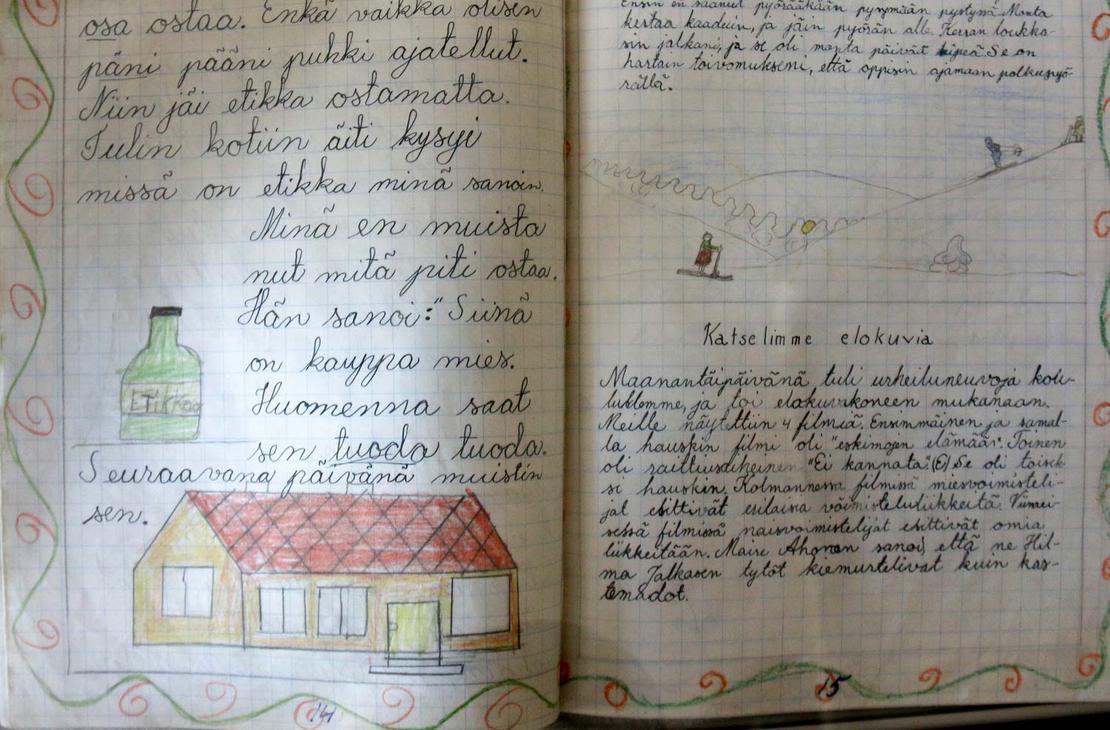 osa ostaa. Enkä vaikka olisin
päni pääni puhki ajatellut.
Niin jäi etikka ostamatta.
Tulin kotiin äiti kysyi
missä on etikka minä sanoin.
Minä en muista
nut mitä piti ostaa.
Hän sanoi: "Siinä
on kauppa mies.
Huomenna saat
sen tuoda tuoda.
Seuraavana päivänä muistin
sen.
ETIKKAA
14
Ensin en saanut pyörääkään pysymään pystyssä. Monta
kertaa kaaduin, ja jäin pyörän alle. Kerran loukka-
sin jalkani, ja se oli monta päivät kipeä. Se on
hartain toivomukseni, että oppisin ajamaan polkupyö-
rällä.
Katselimme elokuvia
Maanantaipäivänä tuli urheiluneuvoja kou-
lullemme, ja toi elokuvakoneen mukanaan.
Meille näytettiin 4 filmiä. Ensimmäinen ja samal-
la hauskin filmi oli "eskimojen elämää". Toinen
oli raittiusaiheinen "Ei kannata". (E) Se oli toisek-
si hauskin. Kolmannessa filmissä miesvoimisteli-
jat esittivät erilaisia voimisteluliikkeitä. Viimei-
sessä filmissä naisvoimistelijat esittivät omia
liikkeitään. Maire Ahonen sanoi, että ne Hil-
ma Jalkasen tytöt kiemurtelivat kuin kas-
temadot.
15